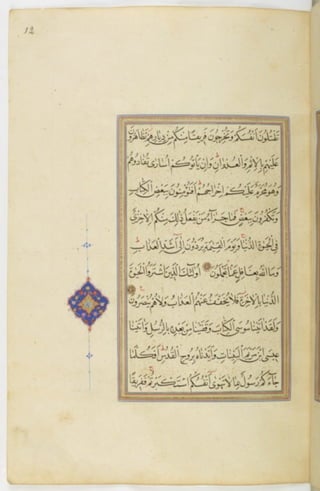 12
تَقْتُلُونَ اَنْفُسَكُمْ وَتُخْرِجُونَ فَرِيقًا مِنْكُمْ مِنْ دِيَارِهِمْ تَظَاهَرُونَ
عَلَيْهِمْ بِالْاِثْمِ وَالْعُدْوَانِ وَاِنْ يَأْتُوكُمْ اُسَارَى تُفَادُوهُمْ
وَهُوَ مُحَرَّمٌ عَلَيْكُمْ اِخْرَاجُهُمْ اَفَتُؤْمِنُونَ بِبَعْضِ الْكِتَابِ
وَتَكْفُرُونَ بِبَعْضٍ فَمَا جَزَاءُ مَنْ يَفْعَلُ ذَلِكَ مِنْكُمْ اِلَّا خِزْىٌ
فِى الْحَيٰوةِ الدُّنْيَا وَيَوْمَ الْقِيٰمَةِ يُرَدُّونَ اِلَى اَشَدِّ الْعَذَابِ
وَمَا اللهُ بِغَافِلٍ عَمَّا تَعْمَلُونَ اُولٰئِكَ الَّذِينَ اشْتَرَوُا الْحَيٰوةَ
الدُّنْيَا بِالْاٰخِرَةِ فَلَا يُخَفَّفُ عَنْهُمُ الْعَذَابُ وَلَا هُمْ يُنْصَرُونَ
وَلَقَدْ اٰتَيْنَا مُوسَى الْكِتَابَ وَقَفَّيْنَا مِنْ بَعْدِهِ بِالرُّسُلِ وَاٰتَيْنَا
عِيسَى ابْنَ مَرْيَمَ الْبَيِّنَاتِ وَاَيَّدْنَاهُ بِرُوحِ الْقُدُسِ اَفَكُلَّمَا
جَاءَكُمْ رَسُولٌ بِمَا لَا تَهْوَى اَنْفُسُكُمُ اسْتَكْبَرْتُمْ فَفَرِيقًا